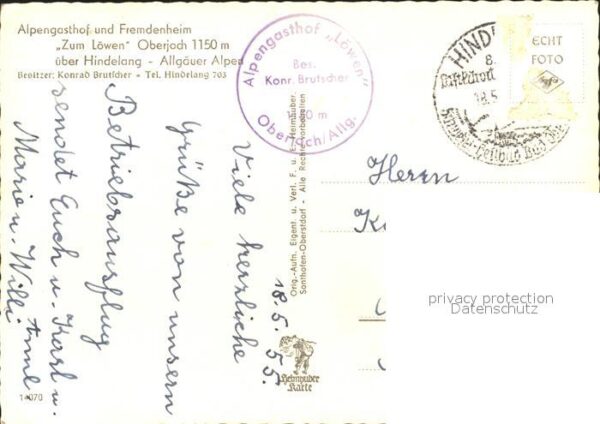 Alpengasthof und Fremdenheim
„Zum Löwen" Oberjoch 1150 m
über Hindelang - Allgäuer Alpen
Besitzer: Konrad Brutscher - Tel. Hindelang 703
Alpengasthof „Löwen"
Bes.
Konr. Brutscher
Oberjoch/Allg.
HIND
18.5
ECHT
FOTO
Agfa
18.5.55.
Viele herzliche
Grüße von unserm
Betriebsausflug
sendet Euch u. Karl u.
Maria u. Willi
Orig.-Aufn. Eigent. u. Verl. F. u. E. Heimhuber,
Sonthofen-Oberstdorf - Alle Rechte vorbehalten
Heimhuder
Karte
Herrn
privacy protection
Datenschutz
14070